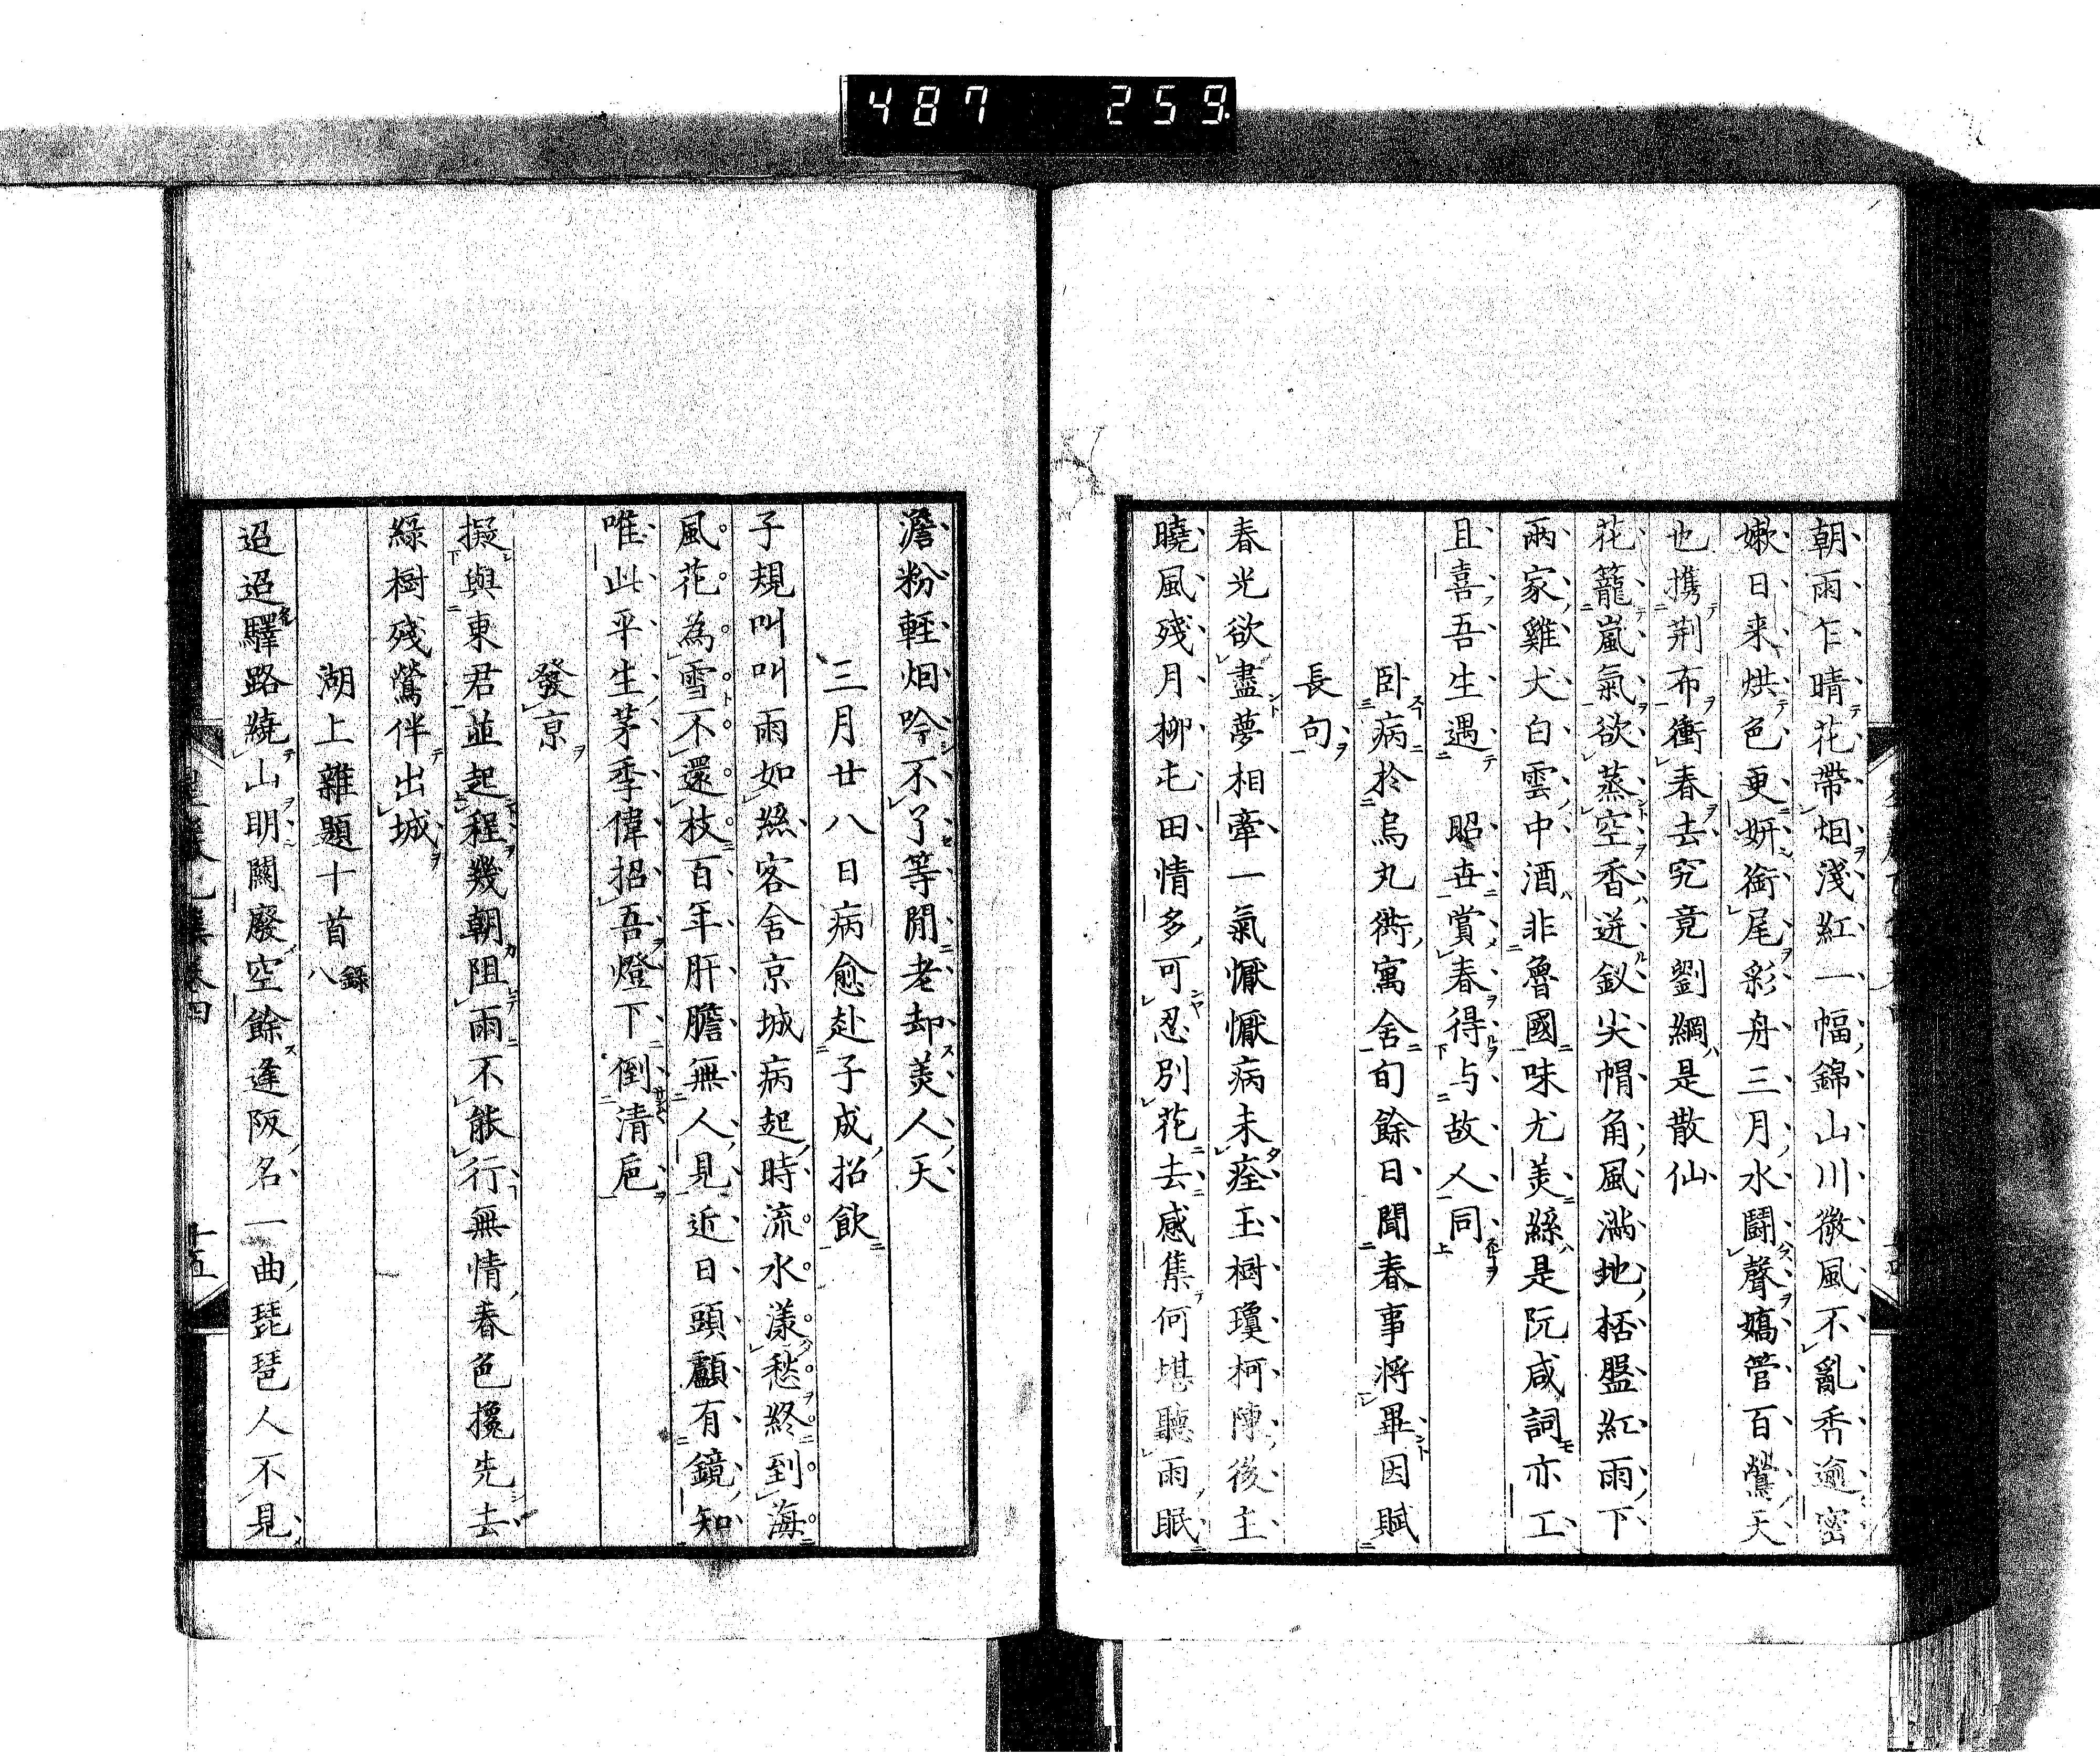 487 259
朝雨乍晴花帶烟淺紅一幅錦山川微風不亂香逾密
嫰日来烘色更妍銜尾彩舟三月水鬪聲嬌管百鶯天
也携荆布衝春去究竟劉綱是散仙
花籠嵐氣欲蒸空香迸釵尖帽角風滿地栝盤紅雨下
兩家雞犬白雲中酒非魯國味尤美絲是阮咸詞亦工
且喜吾生遇 昭世賞春得与故人同
卧病於烏丸衖寓舍旬餘日聞春事將畢因賦
長句
春光欲盡夢相牽一氣懨懨病未痊玉樹瓊柯陳後主
曉風殘月柳屯田情多可忍別花去感集何堪聽雨眠
澹粉輕烟吟不了等閒老却美人天
三月廿八日病愈赴子成招飲
子規叫叫雨如絲客舍京城病起時流水漾愁終到海
風花為雪不還枝百年肝膽無人見近日頭顱有鏡知
唯此平生茅季偉招吾燈下倒清巵
發京
擬與東君並起程幾朝阻雨不能行無情春色攙先去
綠樹殘鶯伴出城
湖上雜題十首 錄八
迢迢驛路繞山明關廢空餘逢阪名一曲琵琶人不見
集卷四
十五